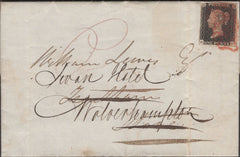 William Lewis Esq
Swan Hotel
Wolverhampton